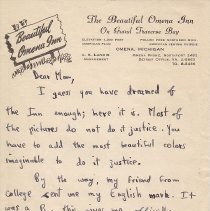 Beautiful
Omena Inn
The Beautiful Omena Inn
On Grand Traverse Bay
OMENA, MICHIGAN
MANAGEMENT
Dear Mom,
I guess you have dreamed of
the Inn enough; here it is. Most of
the pictures do not do it justice. You
have to add the most beautiful colors
imaginable to do it justice.
By the way, my friend from
College sent me my English mark. It
was a B.